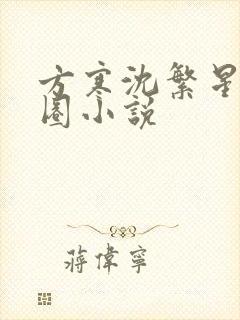 方寒沈繁星
圈小説
蔣偉寧